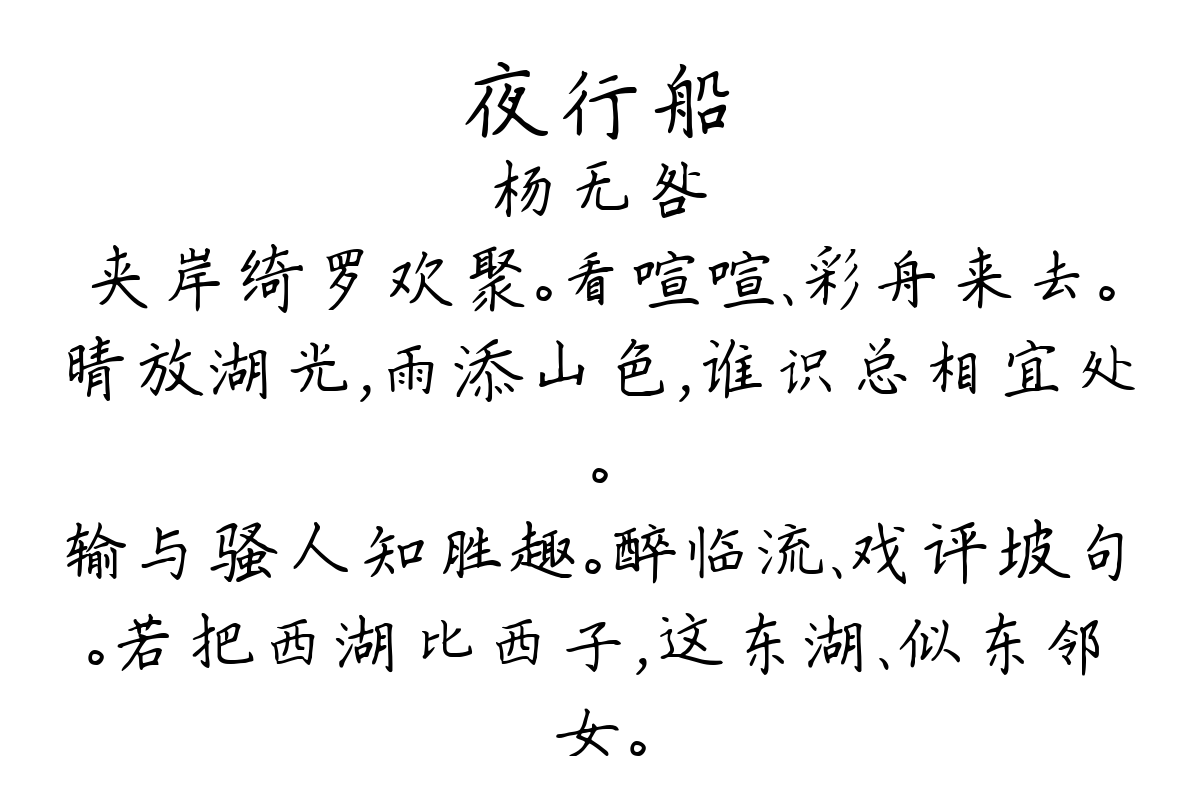 夜行船
杨无咎
夹岸绮罗欢聚。看喧喧、彩舟来去。
晴放湖光,雨添山色,谁识总相宜处
。
输与骚人知胜趣。醉临流、戏评坡句
。若把西湖比西子,这东湖、似东邻
女。